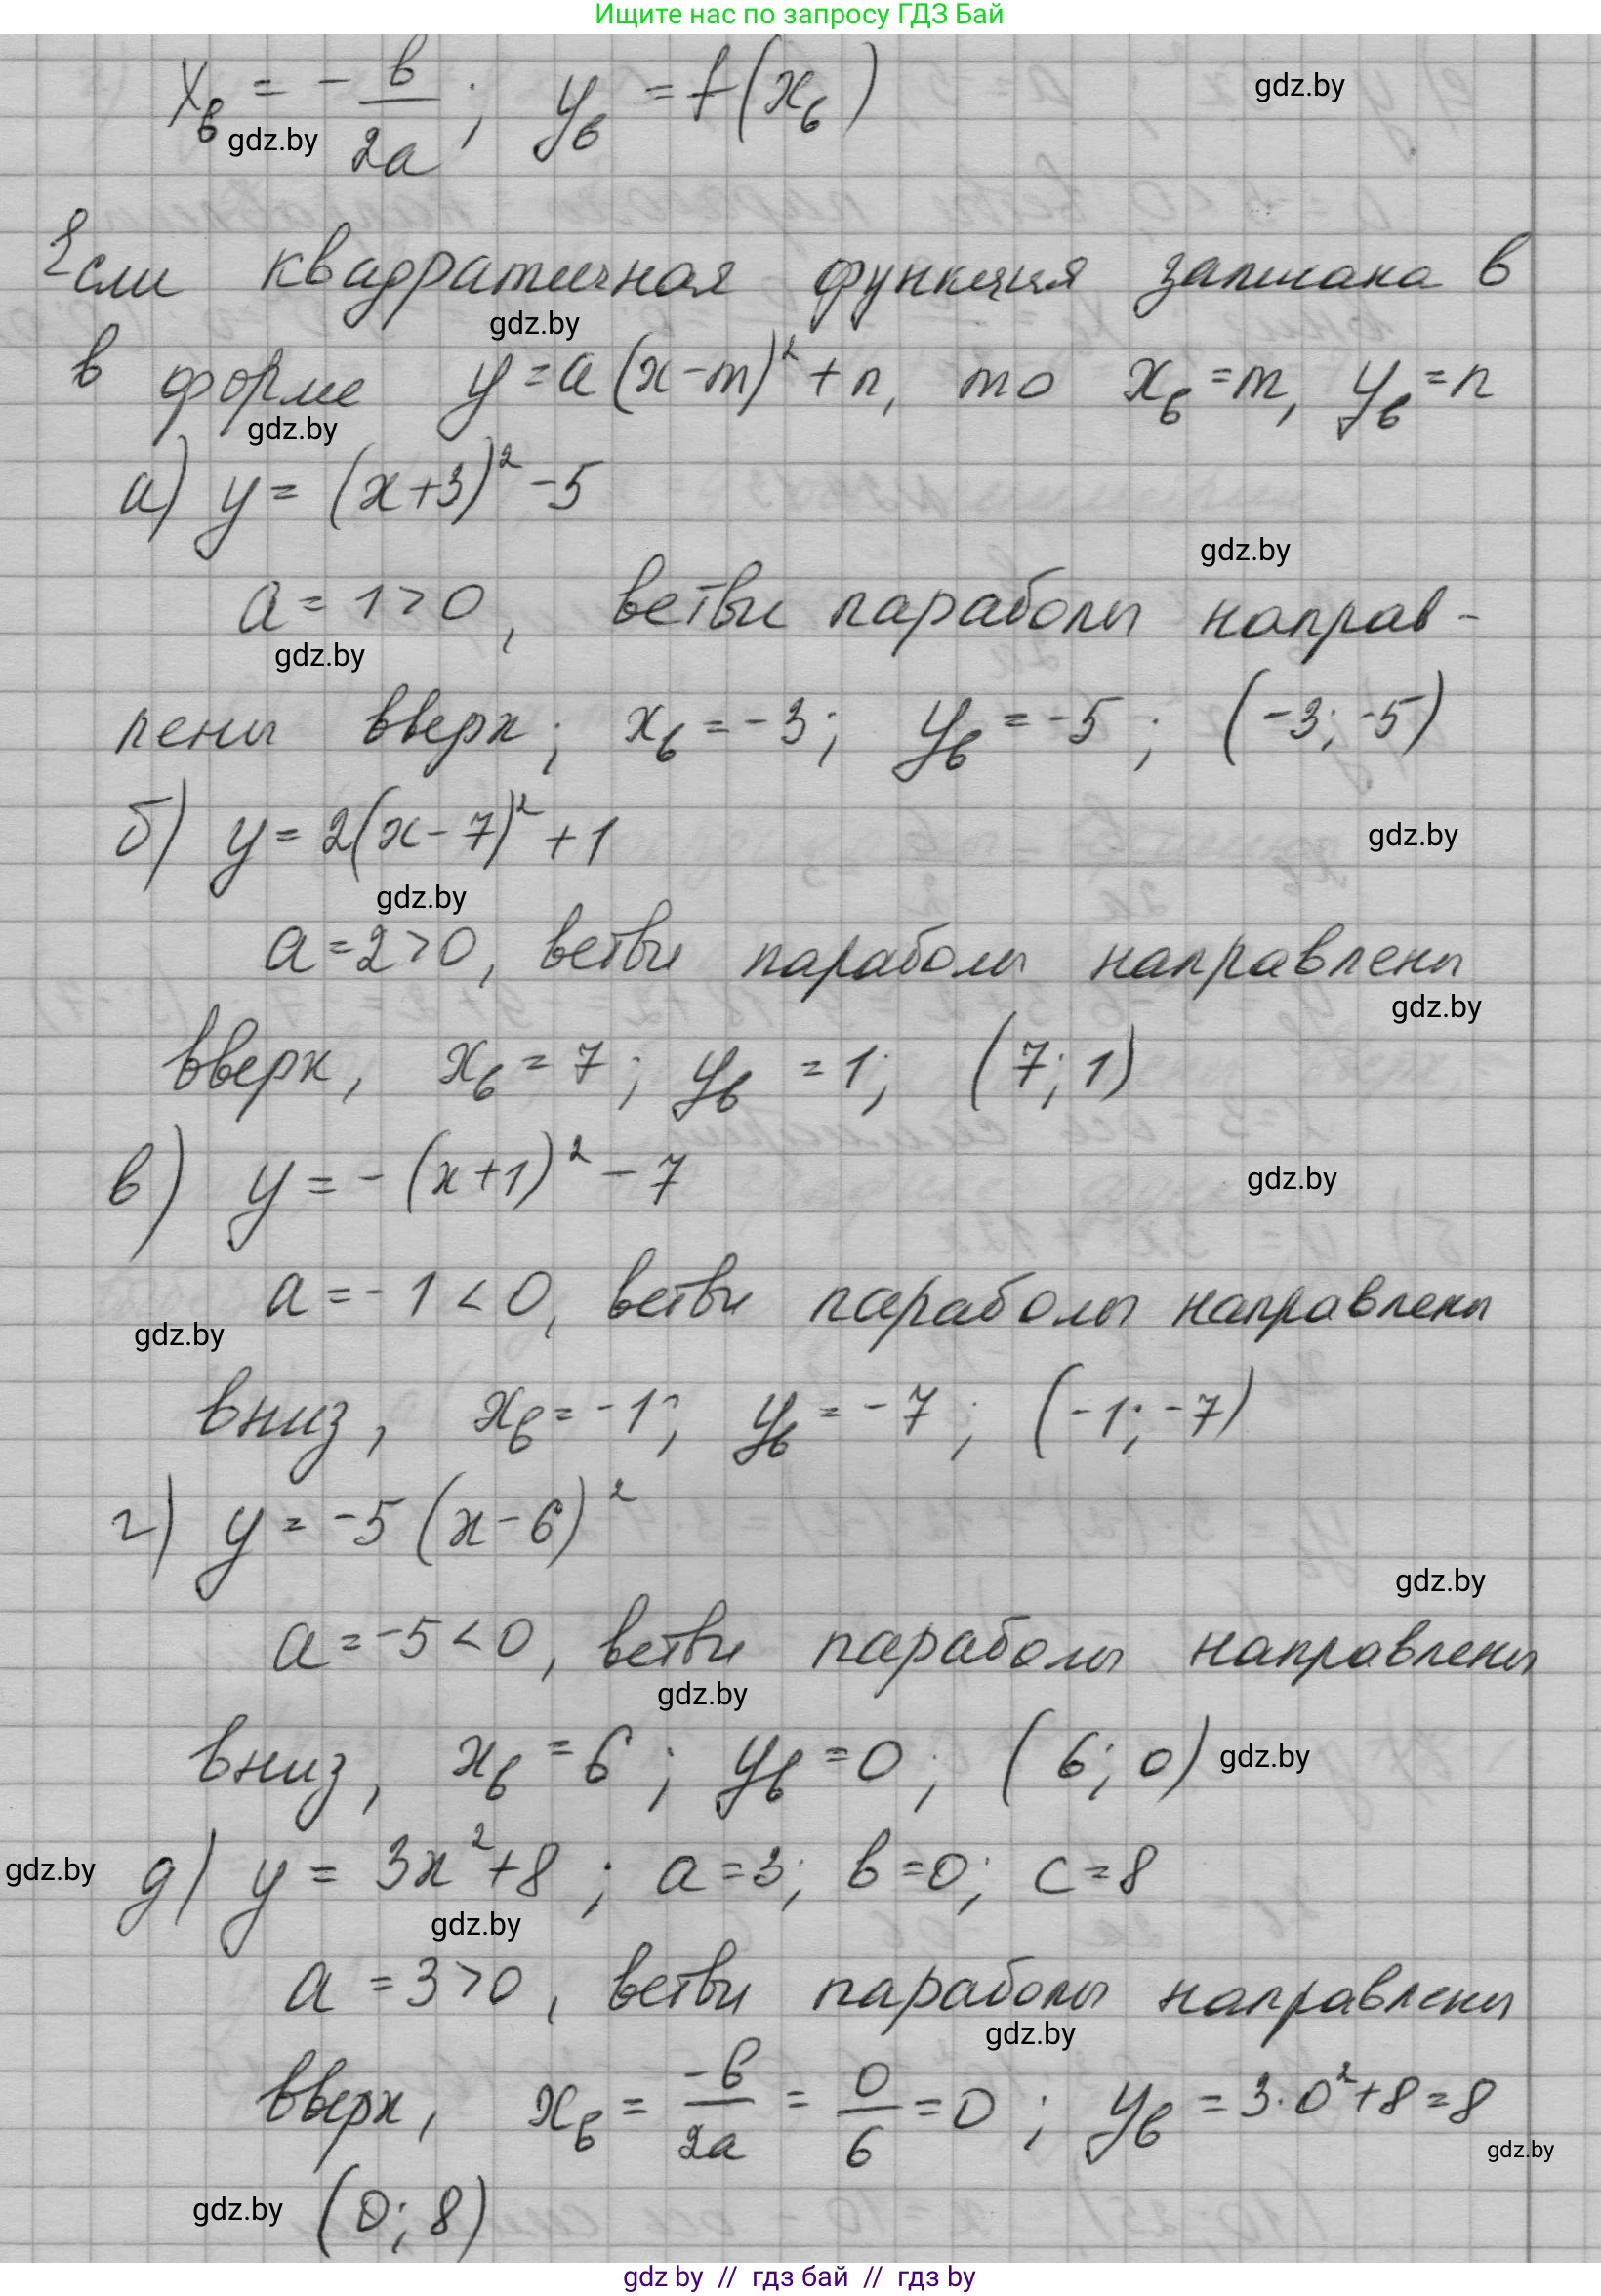 Ищите нас по запросу ГДЗ Бай
xв = - в/2a; yв = f(xв)
gdz.by
gdz.by
Если квадратичная функция записана в
gdz.by
в форме y=a(x-m)²+n, то xв=m, yв=n
gdz.by
а) y= (x+3)²-5
gdz.by
a=1>0, ветви параболы направ-
gdz.by
лены вверх; xв=-3; yв=-5; (-3;-5)
б) y=2(x-7)²+1
gdz.by
gdz.by
a=2>0, ветви параболы направлены
gdz.by
вверх, xв=7; yв=1; (7;1)
в) y=-(x+1)²-7
gdz.by
a=-1<0, ветви параболы направлены
gdz.by
вниз, xв=-1; yв=-7; (-1;-7)
г) y=-5(x-6)²
gdz.by
a=-5<0, ветви параболы направлены
gdz.by
вниз, xв=6; yв=0; (6;0)
gdz.by
gdz.by
д) y=3x²+8; a=3; в=0; c=8
gdz.by
a=3>0, ветви параболы направлены
gdz.by
вверх, xв = -в/2a = 0/6 = 0; yв = 3·0²+8=8
gdz.by
gdz.by
(0;8)
gdz by // гдз бай // гдз by